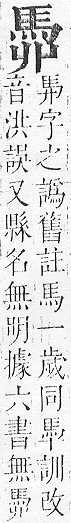 字之譌舊註馬一歲同訓改
音洪誤又縣名無明據六書無